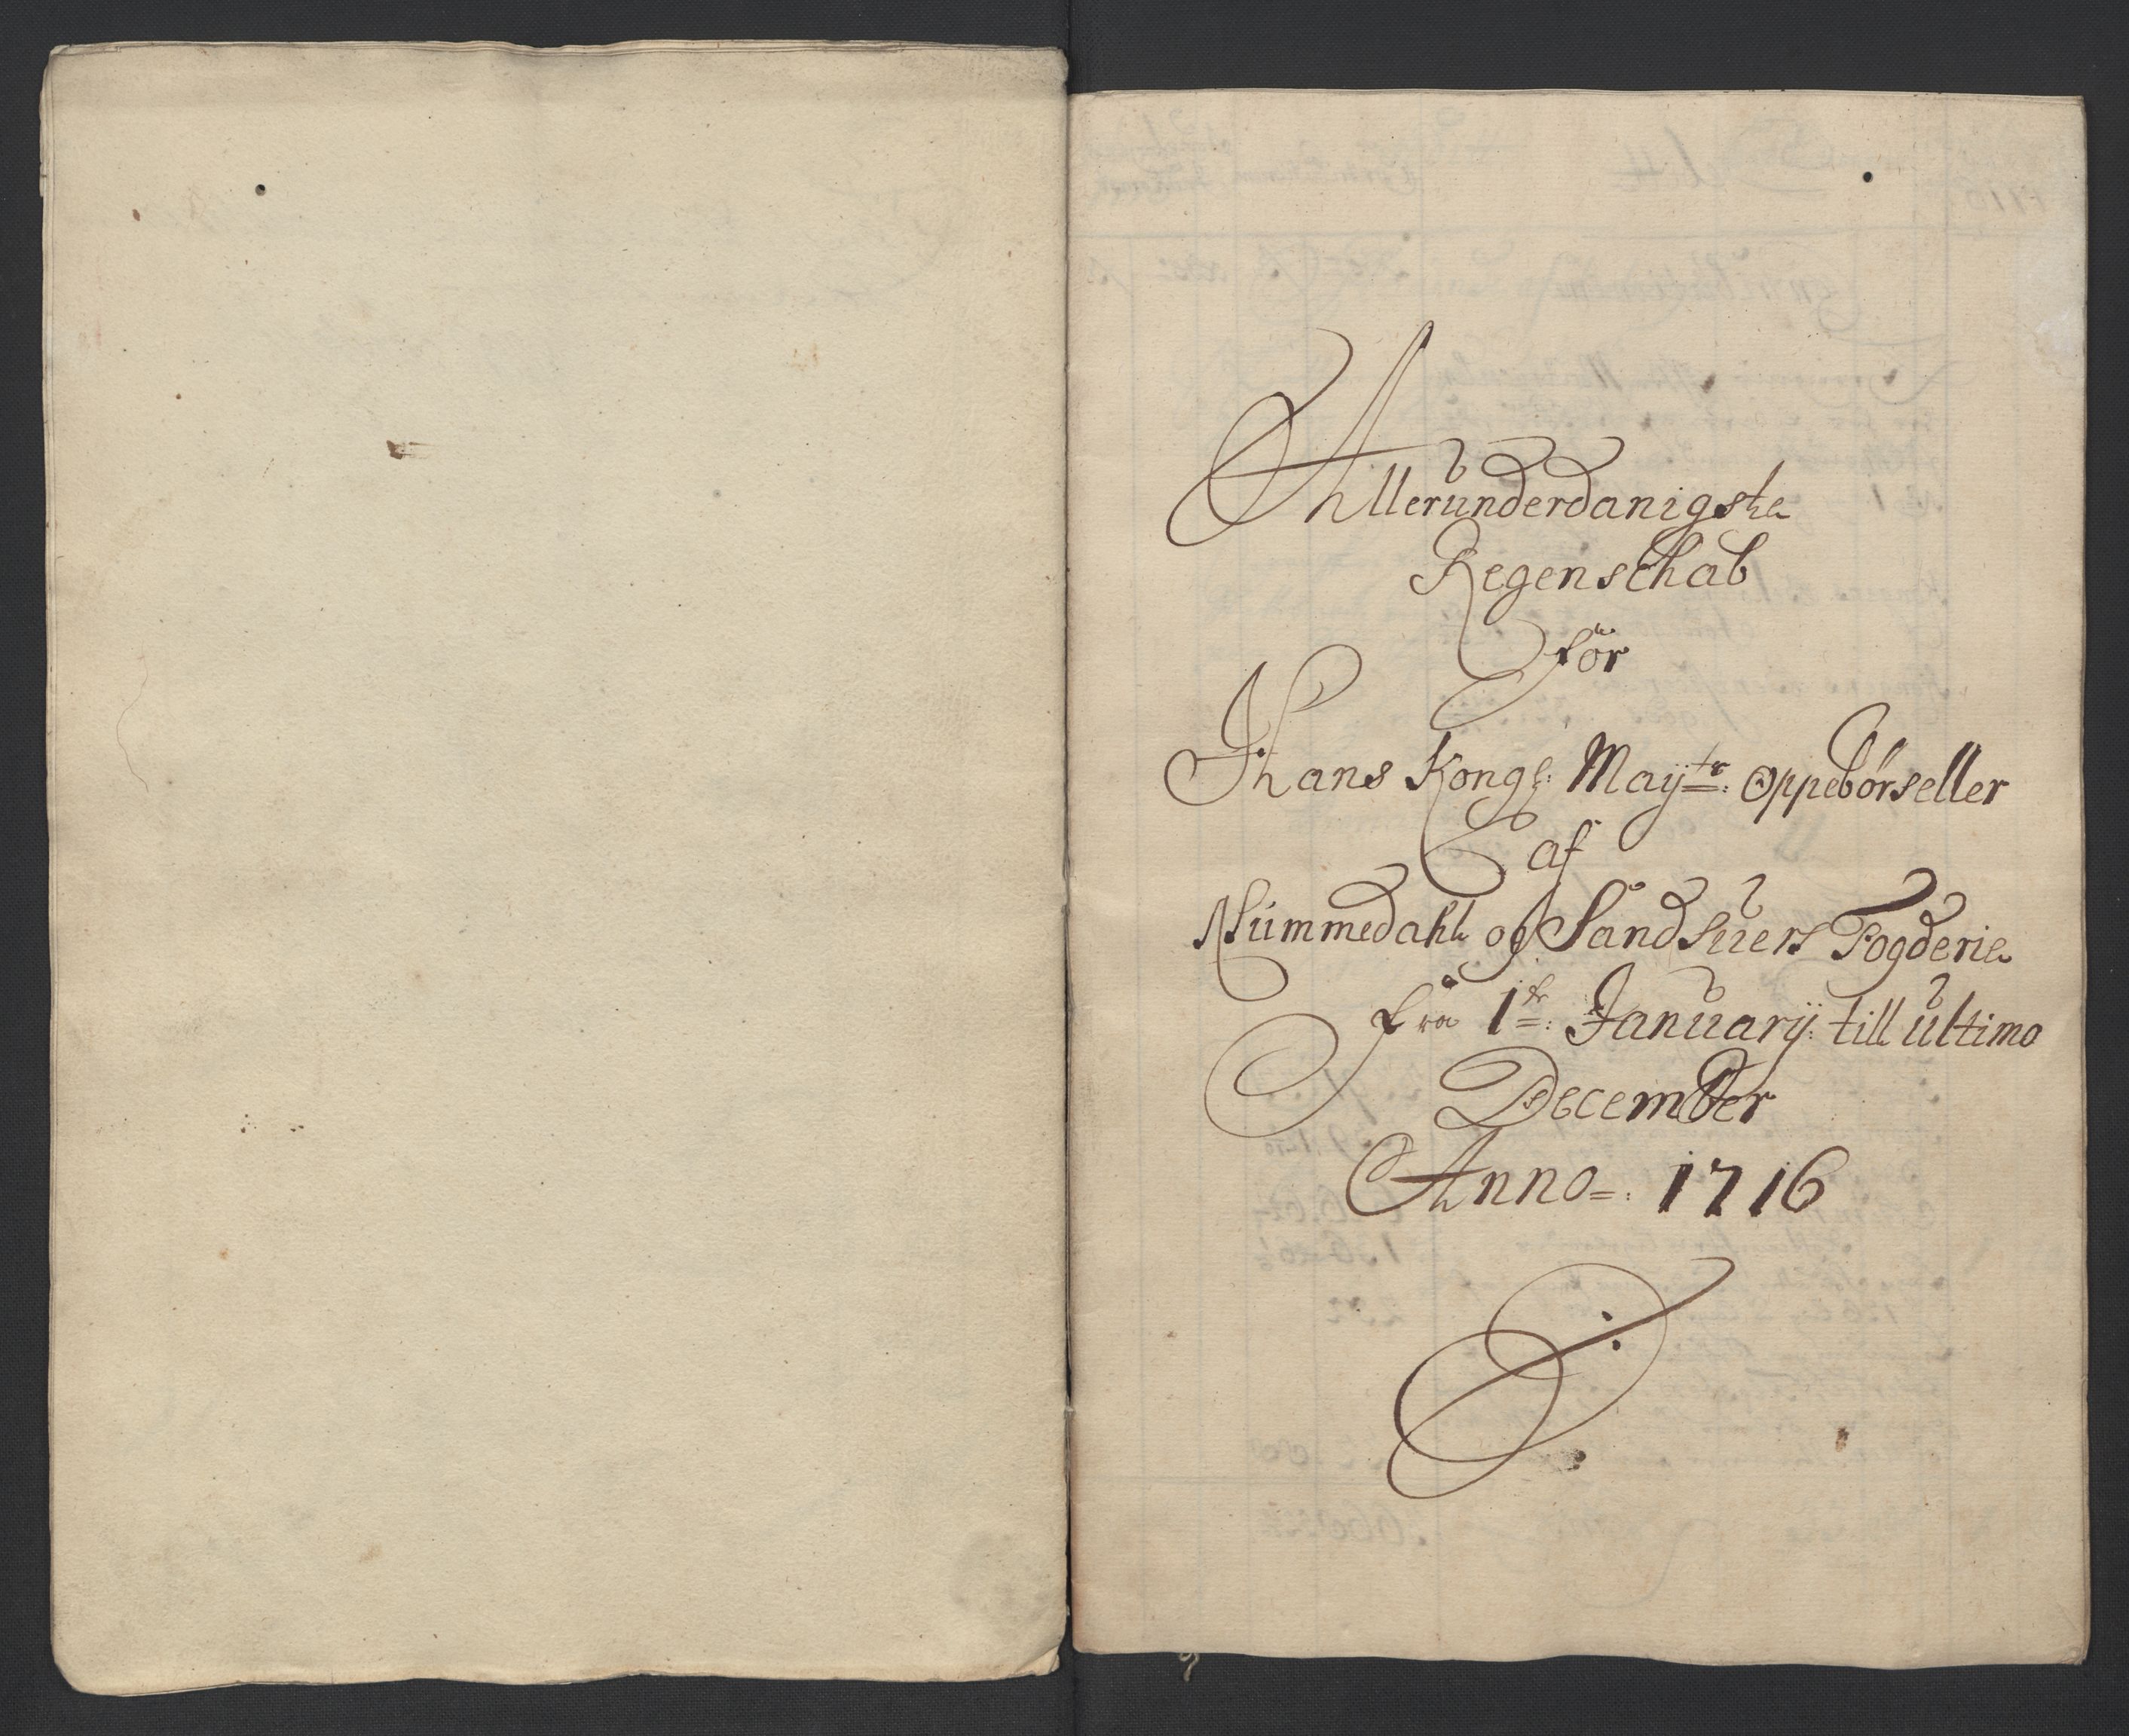 Allerunderdanigste
Regenschab
för
Hans Kongl: May:tz Oppebörseller
af
Nummedahl og Sandsuers Fogderie
fra 1te: Januarij till ultimo
December
Anno=: 1716